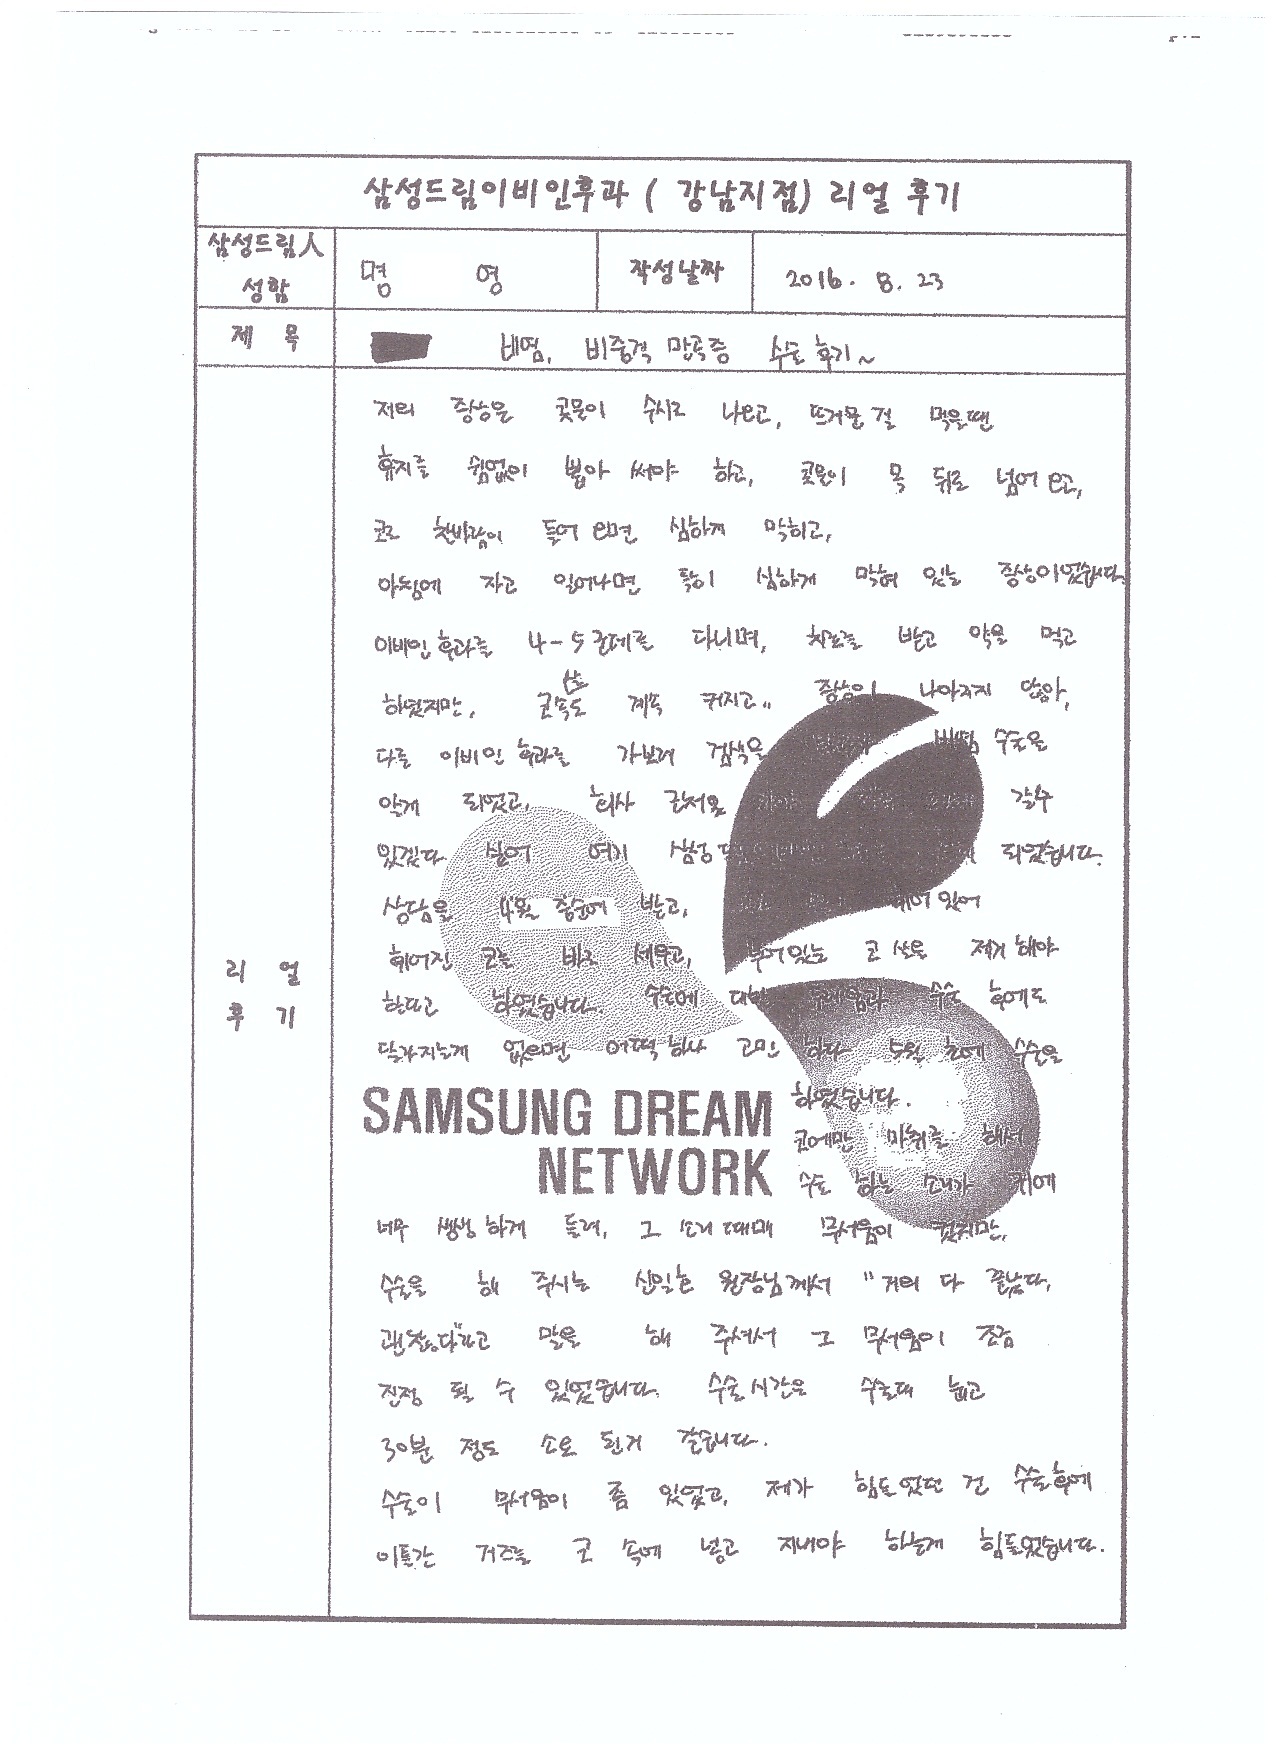 삼성드림이비인후과 ( 강남지점) 리얼 후기
삼성드림人
성함
명 영
작성날짜
2016. 8. 23
제 목
비염, 비중격 만곡증 수술 후기~
리 얼
후 기
저의 증상은 콧물이 수시로 나오고, 뜨거운걸 먹을땐
휴지를 쉼없이 뽑아 써야 하고, 콧물이 목 뒤로 넘어 오고,
코로 찬바람이 들어 오면 심하게 막히고,
아침에 자고 일어나면 특히 심하게 막혀 있는 증상이었습니다.
이비인후과를 4-5군데를 다니며, 치료를 받고 약을 먹고
하였지만, 코속살도 계속 커지고.. 증상이 나아지지 않아,
다른 이비인후과를 가보려 검색을 비염 수술을
알게 되었고, 회사 갈수
있겠다 싶어 여기 삼성 되었습니다.
상담을 4월 중순에 받고, 있어
휘어진 코를 바로 세우고, 부어있는 코 살을 제거 해야
한다고 하였습니다. 수술에 대한 두려움과 수술 후에도
달라지는게 없으면 어떡하나 고민 하다 5월 초에 수술을
하였습니다.
SAMSUNG DREAM
NETWORK
코에만 마취를 해서
수술 하는 소리가 귀에
너무 생생하게 들려, 그 소리 때매 무서움이 컸지만,
수술을 해 주시는 신일호 원장님께서 "거의 다 끝났다,
괜찮다"라고 말을 해 주셔서 그 무서움이 조금
진정 될 수 있었습니다. 수술시간은 수술대 눕고
30분 정도 소요 된거 같습니다.
수술이 무서움이 좀 있었고, 제가 힘들었던 건 수술후에
이틀간 거즈를 코 속에 넣고 지내야 하는게 힘들었습니다.